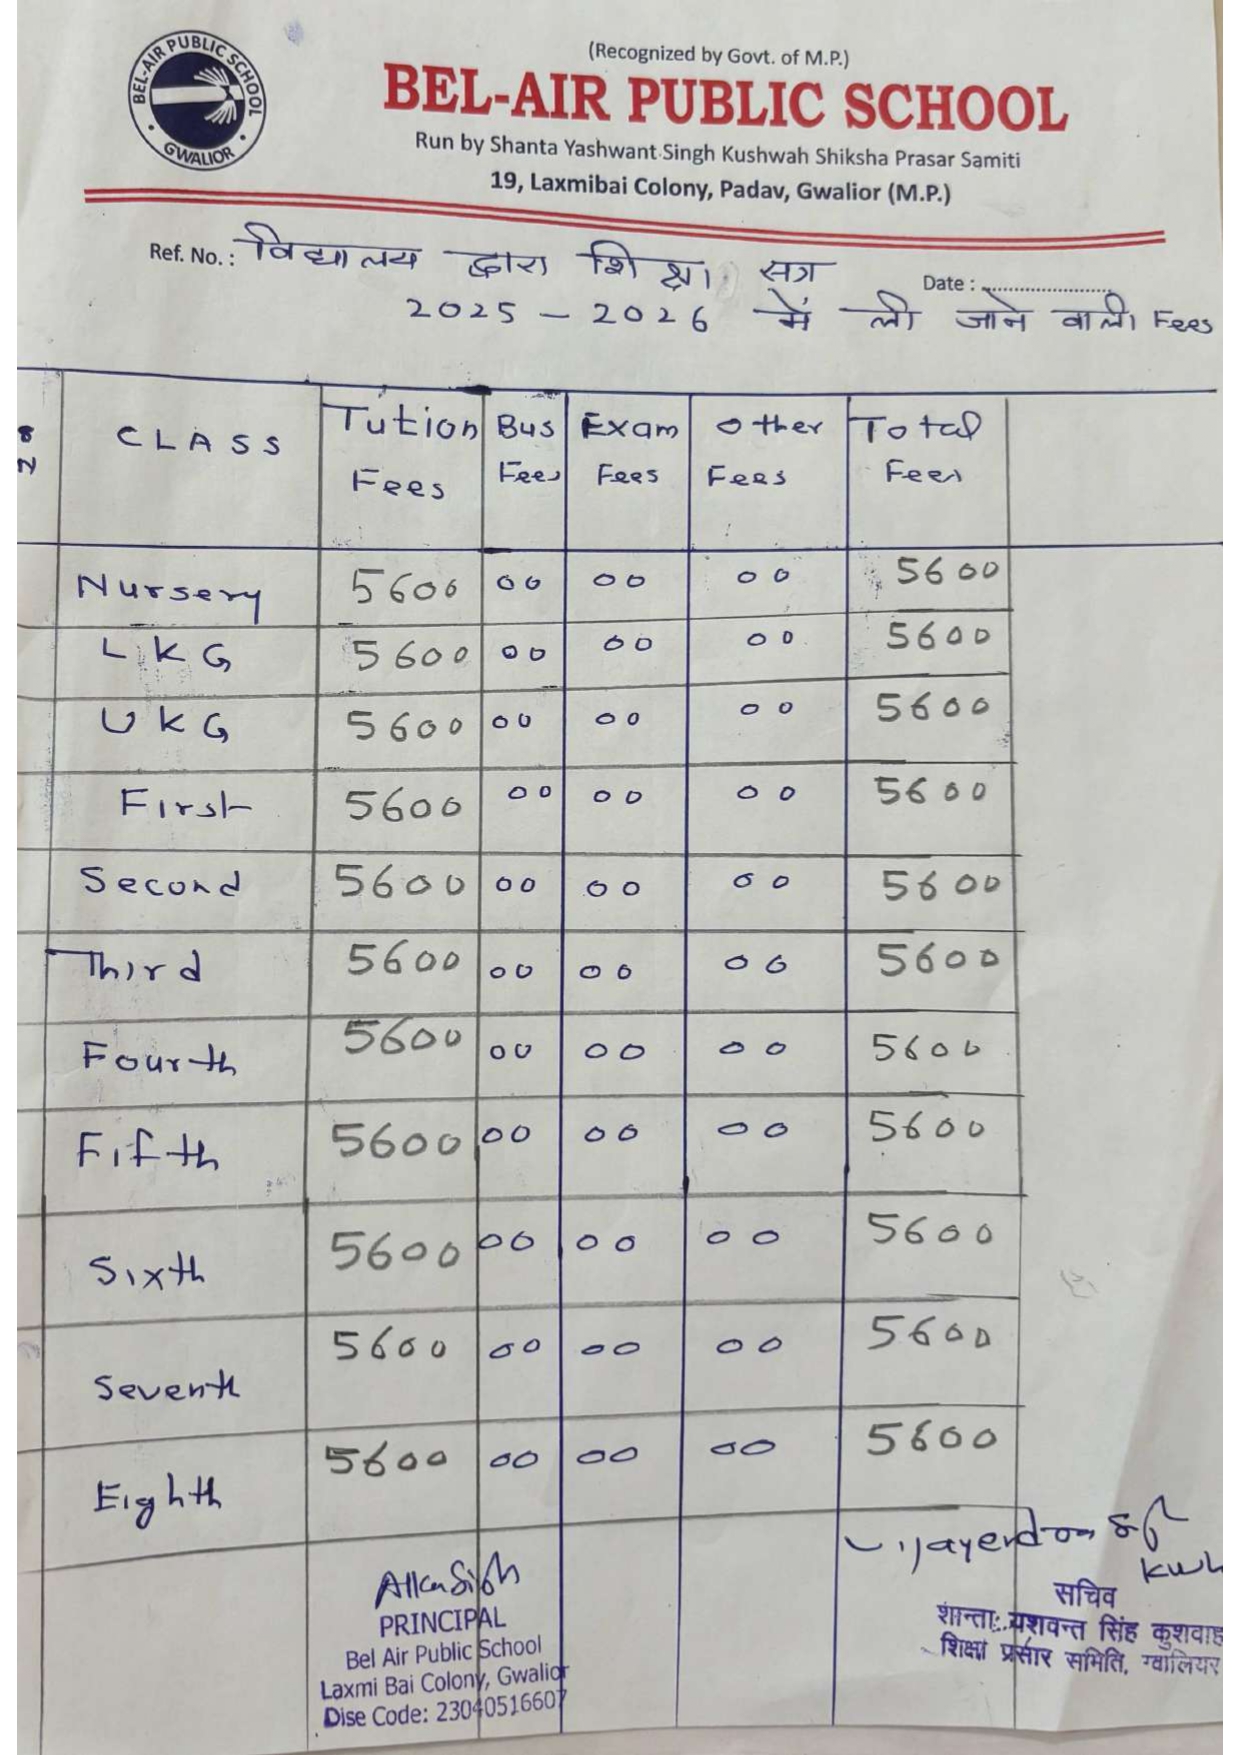 BEL-AIR PUBLIC SCHOOL
GWALIOR
(Recognized by Govt. of M.P.)
BEL-AIR PUBLIC SCHOOL
Run by Shanta Yashwant Singh Kushwah Shiksha Prasar Samiti
19, Laxmibai Colony, Padav, Gwalior (M.P.)
Ref. No.: विद्यालय द्वारा शिक्षा सत्र
Date : ......................
2025 - 2026 में ली जाने वाली Fees
CLASS Tution Fees Bus Fees Exam Fees Other Fees Total Fees
Nursery 5600 00 00 00 5600
LKG 5600 00 00 00 5600
UKG 5600 00 00 00 5600
First 5600 00 00 00 5600
Second 5600 00 00 00 5600
Third 5600 00 00 00 5600
Fourth 5600 00 00 00 5600
Fifth 5600 00 00 00 5600
Sixth 5600 00 00 00 5600
Seventh 5600 00 00 00 5600
Eighth 5600 00 00 00 5600
PRINCIPAL
Bel Air Public School
Laxmi Bai Colony, Gwalior
Dise Code: 23040516607
सचिव
शान्ता यशवन्त सिंह कुशवाह
शिक्षा प्रसार समिति, ग्वालियर